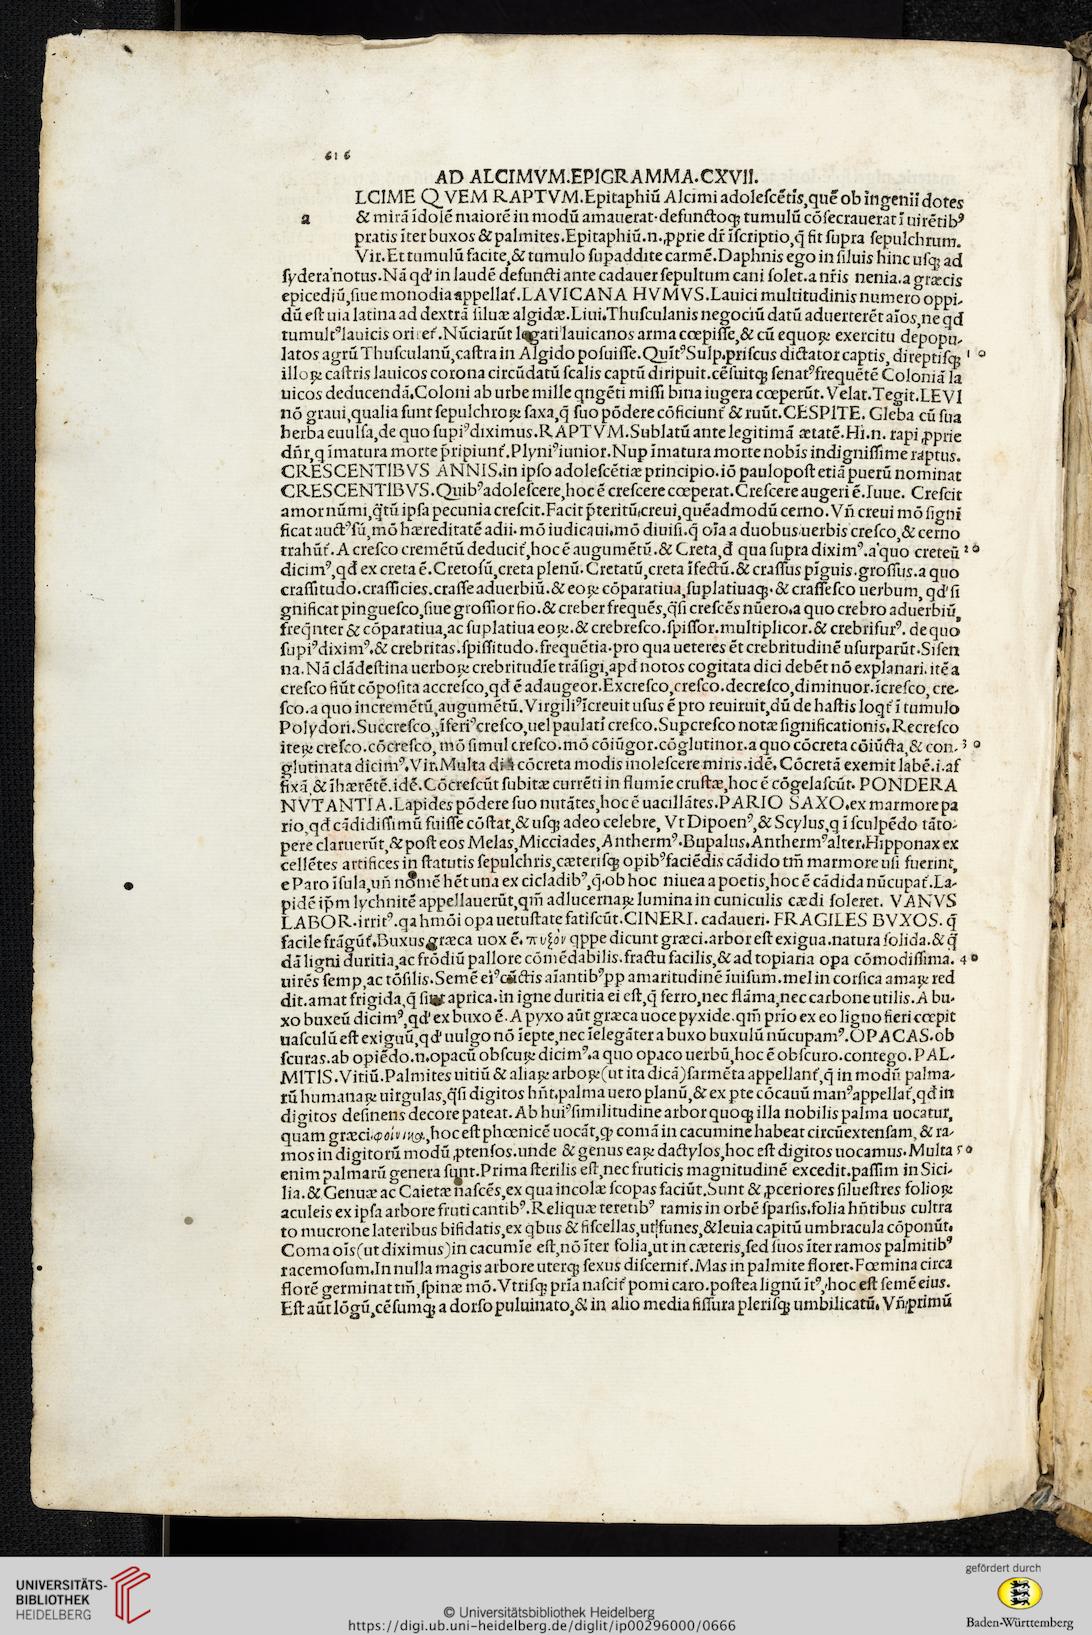 616
AD ALCIMVM.EPIGRAMMA.CXVII.
LCIME QVEM RAPTVM.Epitaphiū Alcimi adolescētis,quē ob ingenii dotes
a & mirā īdolē maiorē in modū amauerat.defunctoqꝫ tumulū cōsecrauerat ī uirētibꝰ
pratis īter buxos & palmites.Epitaphiū.n.ꝓprie dr̄ īscriptio,q̄ fit supra sepulchrum.
Vir.Et tumulū facite,& tumulo supaddite carmē.Daphnis ego in siluis hinc usqꝫ ad
sydera notus.Nā qd' in laudē defuncti ante cadauer sepultum cani solet.a nr̄is nenia.a græcis
epicediū,siue monodia appellat̄.LAVICANA HVMVS.Lauici multitudinis numero oppi-
dū est uia latina ad dextrā siluæ algidæ.Liui.Thusculanis negociū datū aduerterēt aīos,ne qd
tumultꝰ lauicis oriret̄.Nūciarūt legati lauicanos arma cœpisse,& cū equoꝝ exercitu depopu-
latos agrū Thusculanū,castra in Algido posuisse.Quīt̄ꝰ Sulp.priscus dictator captis, direptisqꝫ 10
illoꝝ castris lauicos corona circūdatū scalis captū diripuit.cēsuitqꝫ senatꝰ frequētē Coloniā la
uicos deducendā.Coloni ab urbe mille qngēti missi bina iugera cœperūt. Velat.Tegit.LEVI
nō graui,qualia sunt sepulchroꝝ saxa,q̄ suo pōdere cōficiunt̄ & ruūt.CESPITE. Gleba cū sua
herba euulsa,de quo supiꝰ diximus.RAPTVM.Sublatū ante legitimā ætatē.Hi.n. rapi ꝓprie
dn̄r,q īmatura morte p̄ripiunt̄.Plyniꝰ iunior.Nup īmatura morte nobīs indignissime raptus.
CRESCENTIBVS ANNIS.in ipso adolescētiæ principio.iō paulopost etiā puerū nominat
CRESCENTIBVS.Quibꝰ adolescere,hoc ē crescere cœperat.Crescere augeri ē.Iuue. Crescit
amor nūmi,q̄tū ipsa pecunia crescit.Facit p̄teritū,creui,quēadmodū cerno.Vn̄ creui mō signi
ficat auctꝰ sū,mō hæreditatē adii.mō iudicaui.mō diuisi.q̄ oīa a duobus uerbis cresco,& cerno
trahūt̄.A cresco cremētū deducit̄,hoc ē augumētū.& Creta,đ qua supra diximꝰ.a quo creteū 20
dicimꝰ,qđ ex creta ē.Cretosū,creta plenū.Cretatū,creta īfectū.& crassus pīguis.grossus.a quo
crassitudo.crassicies.crasse aduerbiū.& eoꝝ cōparatiua,suplatiuaqꝫ.& crassesco uerbum, qd' si
gnificat pinguesco,siue grossior fio.& creber frequēs,q̄si crescēs nūero.a quo crebro aduerbiū,
freq̄nter & cōparatiua,ac suplatiua eoꝝ.& crebresco.spissor.multiplicor.& crebrisurꝰ. de quo
supiꝰ diximꝰ.& crebritas.spissitudo.frequētia.pro qua ueteres ēt crebritudinē usurparūt.Sisen
na.Nā clādestina uerboꝝ crebritudīe trāsigi,apđ notos cogitata dici debēt nō explanari.itē a
cresco fiūt cōposita accresco,qđ ē adaugeor.Excresco,cresco.decresco,diminuor.īcresco, cre-
sco.a quo incremētū,augumētū.Virgiliꝰ īcreuit usus ē pro reuiruit,dū de hastis loqt̄ ī tumulo
Polydori.Succresco,,īferiꝰ cresco,uel paulatī cresco.Supcresco notæ significationis.Recresco
iteꝝ cresco.cōcresco, mō simul cresco.mō cōiūgor.cōglutinor.a quo cōcreta cōiūcta,& con- 30
glutinata dicimꝰ.Vir.Multa diu cōcreta modis inolescere miris.idē.Cōcretā exemit labē.i.af
fixā,& īhærētē.idē.Cōcrescūt subitæ currēti in flumīe crustæ,hoc ē cōgelascūt. PONDERA
NVTANTIA.Lapides pōdere suo nutātes,hoc ē uacillātes.PARIO SAXO.ex marmore pa
rio,qđ cādidissimū fuisse cōstat,& usqꝫ adeo celebre, Vt Dipoenꝰ,& Scylus,q ī sculpēdo tāto-
pere claruerūt,& post eos Melas,Micciades,Anthermꝰ.Bupalus.Anthermꝰ alter.Hipponax ex
cellētes artifices in statutis sepulchris,cæterisqꝫ opibꝰ faciēdis cādido tm̄ marmore usi fuerint,
e Paro īsula,un̄ nomē hēt una ex cicladibꝰ,q̄.ob hoc niuea a poetis,hoc ē cādida nūcupat̄.La-
pidē ip̄m lychnitē appellauerūt,qm̄ ad lucernaꝝ lumina in cuniculis cædi soleret. VANVS
LABOR.irritꝰ.qa hmōi opa uetustate fatiscūt.CINERI. cadaueri. FRAGILES BVXOS. q̄
facile frāgūt̄.Buxus græca uox ē. πυξὸν qppe dicunt græci.arbor est exigua.natura solida.& q̄
dā ligni duritia,ac frōdiū pallore cōmēdabilis.fractu facilis,& ad topiaria opa cōmodissima. 40
uirēs semp,ac tōsilis.Semē eiꝰ cūctis aīantibꝰ pp amaritudinē īuisum.mel in corsica amaꝝ red
dit.amat frigida,q̄ sint aprica.in igne duritia ei est,q̄ ferro,nec flāma,nec carbone utilis.A bu-
xo buxeū dicimꝰ,qd' ex buxo ē.A pyxo aūt græca uoce pyxide.qm̄ prīo ex eo ligno fieri cœpit
uasculū est exiguū,qd' uulgo nō īepte,nec īelegāter a buxo buxulū nūcupamꝰ.OPACAS.ob
scuras.ab opiēdo.n.opacū obscuꝝ dicimꝰ.a quo opaco uerbū,hoc ē obscuro.contego.PAL-
MITIS.Vitiū.Palmites uitiū & aliaꝝ arboꝝ(ut ita dicā)sarmēta appellant̄,q̄ in modū palma-
rū humanaꝝ uirgulas,q̄si digitos hn̄t.palma uero planū,& ex ꝑte cōcauū manꝰ appellat̄,qđ in
digitos desinens decore pateat.Ab huiꝰ similitudine arbor quoqꝫ illa nobilis palma uocatur,
quam græci,hoc est phœnicē uocāt,qꝫ comā in cacumine habeat circūextensam, & ra-
mos in digitorū modū ꝓtensos.unde & genus eaꝝ dactylos,hoc est digitos uocamus.Multa 50
enim palmarū genera sunt.Prima sterilis est,nec fruticis magnitudinē excedit.passim in Sici-
lia.& Genuæ ac Caietæ nascēs,ex qua incolæ scopas faciūt.Sunt & ꝓceriores siluestres folioꝝ
aculeis ex ipsa arbore fruticantibꝰ.Reliquæ teretibꝰ ramis in orbē sparsis.folia hn̄tibus cultra
to mucrone lateribus bifidatis,ex qbus & fiscellas,ut funes,& leuia capitū umbracula cōponūt.
Coma oīs(ut diximus)in cacumīe est,nō īter folia,ut in cæteris,sed suos īter ramos palmitibꝰ
racemosum.In nulla magis arbore uterqꝫ sexus discernit̄.Mas in palmite floret.Fœmina circa
florē germinat tm̄,spinæ mō.Vtrisqꝫ prīa nascit̄ pomi caro.postea lignū ītꝰ,hoc est semē eius.
Est aūt lōgū,cēsumqꝫ a dorso puluinato,& in alio media fissura plerisqꝫ umbilicatū. Vn̄ primū
UNIVERSITÄTS-
BIBLIOTHEK
HEIDELBERG
© Universitätsbibliothek Heidelberg
https://digi.ub.uni-heidelberg.de/diglit/ip00296000/0666
gefördert durch
Baden-Württemberg